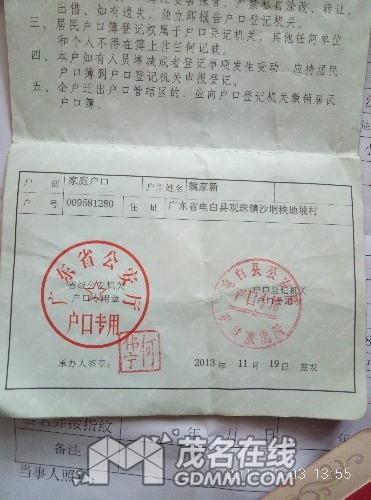 出借。如有遗失，须立即报告户口登记机关。
三、居民户口簿登记权属于户口登记机关，其他任何单位
和个人不得在簿上作任何记载。
四、本户如有人员增减或者登记事项发生变动，应持居民
户口簿到户口登记机关申报登记。
五、全户迁出户口管辖区的，应向户口登记机关缴销居民
户口簿。
户 别 家庭户口 户主姓名 魏家新
户 号 009581280 住 址 广东省电白县观珠镇沙垌秧地坡村
广东省公安厅
户口专用
省级公安机关
户口专用章
电白县公安
户口专用
户口登记机关
户口专用
承办人签章：
何伟宁
2013年 11月 19日 签发
备注
年 月
当事人照
茂名在线
www.mm111.net
13:55